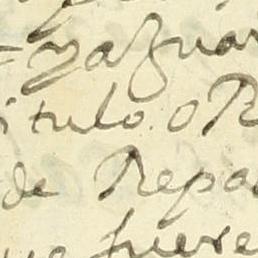 = yaguar
itulo. O R
de Repa
ue fuere